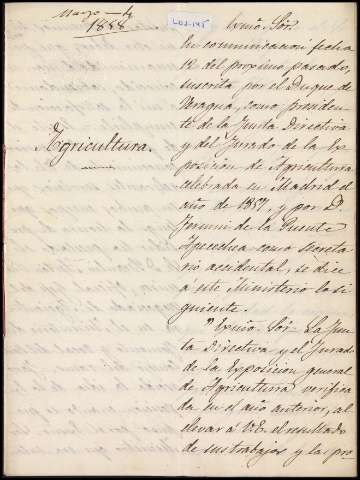 Marzo - 4
1888
Agricultura.
Exmo. Sor.
En comunicacion fecha
12 del proximo pasado,
suscrita por el Duque de
Veragua, como presiden-
te de la Junta Directiva
y del Jurado de la Ex
posicion de Agricultura
celebrada en Madrid el
año de 1857, y por Dn.
Fermin de la Puente
Apecechea como secreta
rio accidental, se dice
a este Ministerio lo si
guiente.
"Exmo. Sor. La Jun
ta Directiva y el Jurado
de la Exposicion general
de Agricultura verifica
da en el año anterior, al
elevar a V.E. el resultado
de sus trabajos y las pro